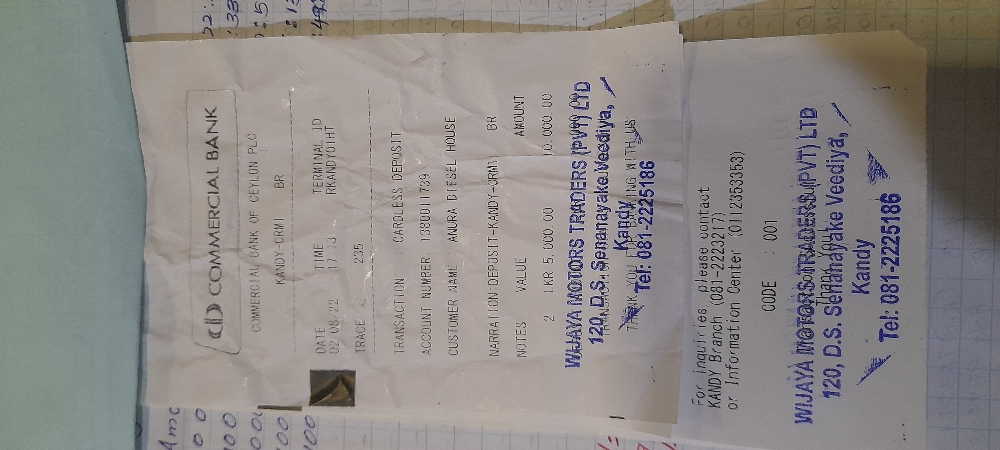 COMMERCIAL BANK
COMMERCIAL BANK OF CEYLON PLC
KANDY-CRM1 BR
DATE TIME TERMINAL ID
02/08/22 17:13 RKANDY01HT
TRACE 235
TRANSACTION : CARDLESS DEPOSIT
ACCOUNT NUMBER 1380011739
CUSTOMER NAME ANURA DIESEL HOUSE
NARRATION DEPOSIT-KANDY-CRM1 BR
NOTES VALUE AMOUNT
2 LKR 5,000.00 10,000.00
THANK YOU FOR BANKING WITH US
WIJAYA MOTORS TRADERS (PVT) LTD
120, D.S. Senanayake Veediya,
Kandy
Tel: 081-2225186
For inquiries please contact
KANDY Branch (081-2223217)
or Information Center (0112353353)
CODE : 001
Thank You!
WIJAYA MOTORS TRADERS (PVT) LTD
120, D.S. Senanayake Veediya,
Kandy
Tel: 081-2225186